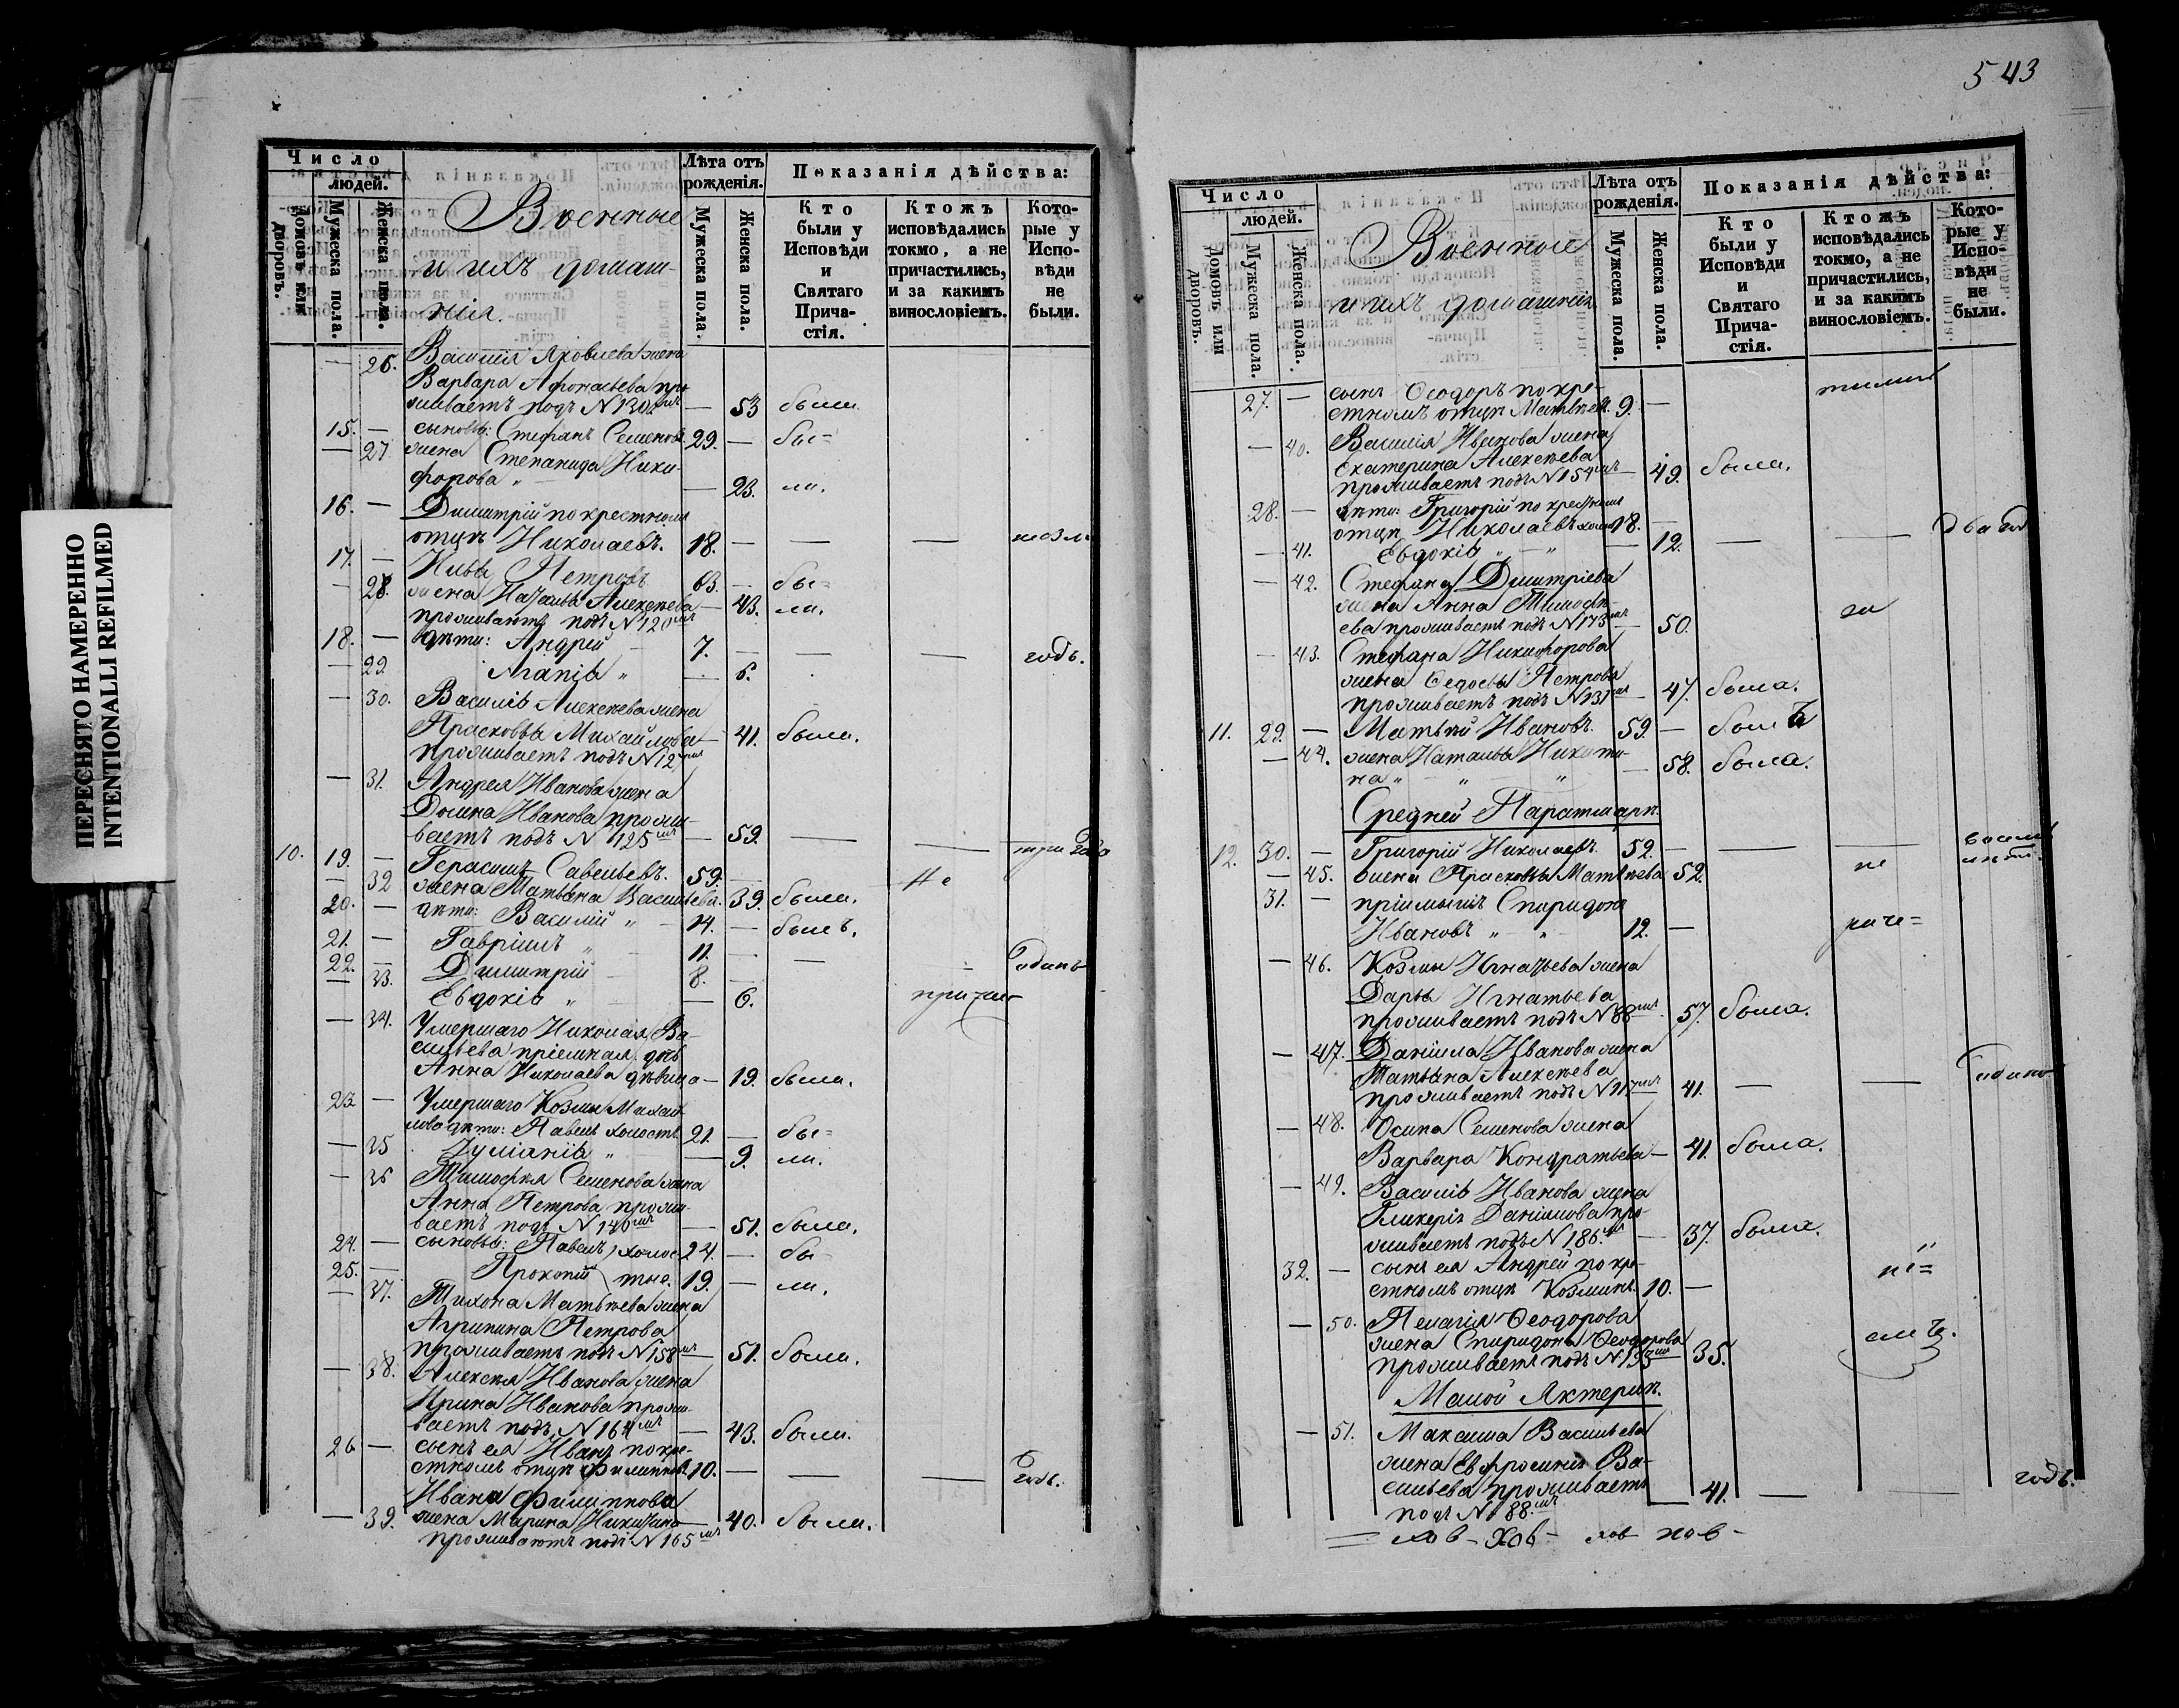 ПЕРЕСНЯТО НАМЕРЕННО
INTENTIONALLI REFILMED
Число
людей.
Домовъ или дворовъ.
Мужеска пола.
Женска пола.
Военные
и ихъ домаш-
нія.
Лѣта отъ рожденія.
Мужеска пола.
Женска пола.
Показанія дѣйства:
Кто были у Исповѣди и Святаго Прича- стія.
Ктожъ исповѣдались токмо, а не причастились, и за какимъ винословіемъ.
Кото- рые у Испо- вѣди не были.
— 26. Василія Яковлева жена
Варвара Афонасьева про-
живаетъ подъ N 130мъ — 53 была
15. — сыновья: Стефанъ Семеновъ 29. — бы=
— 27 жена Степанида Ники-
форова " — 23. ли.
16. — Димитрій по крестномъ
отцѣ Николаевъ. 18. — — —
17. — Петровъ 63. — бы=
— 28. жена Наталья Алексѣева — 43. ли.
проживаютъ подъ N 120мъ
18. — дѣти: Андрей 7. — — — годъ.
— 29 Агапія " — 6.
— 30. Василія Алексѣева жена
Прасковья Михайлова — 41. была.
проживаетъ подъ N 12мъ
— 31. Андрея Иванова жена
Домна Иванова прожи-
ваетъ подъ N 125мъ — 59. — — три года
10. 19. — Герасимъ Савельевъ. 59. — Не
— 32 жена Татьяна Васильева. 39. была.
20. — дѣти: Василій " 14. — былъ.
21. — Гавріилъ " 11. — —
22. — Димитрій 8. — одинъ
— 33. Евдокія " — 6. причас
— 34. Умершаго Николая Ва-
сильева пріемная дочь
Анна Николаева дѣвица — 19. была.
23 — Умершаго Козмы Михай-
лова дѣти: Павелъ холостъ 21. — бы=
— 35 Іуліанія " — 9. ли.
— 36 Тимофея Семенова жена
Анна Петрова прожи-
ваетъ подъ N 140мъ — 51. была.
24. — сыновья: Павелъ холос 24. — бы-
25. — Прокопій тые. 19. — ли.
— 37. Тихона Матвѣева жена
Агрипина Петрова
проживаетъ подъ N 158мъ — 51. была.
— 38. Алексѣя Иванова жена
Ирина Иванова прожи-
ваетъ подъ N 164мъ — 43. была.
26 — сынъ ея Иванъ по кре-
стномъ отцѣ Филиповъ 10. — — — годъ.
Ивана Филиппова
— 39. жена Марина Никитина — 40. была.
проживаютъ подъ N 165мъ
543
Число
людей.
Домовъ или дворовъ.
Мужеска пола.
Женска пола.
Военные
и ихъ домашнія
Лѣта отъ рожденія.
Мужеска пола.
Женска пола.
Показанія дѣйства:
Кто были у Исповѣди и Святаго Прича- стія.
Ктожъ исповѣдались токмо, а не причастились, и за какимъ винословіемъ.
Кото- рые у Испо- вѣди не были.
27. — сынъ Ѳеодоръ по кре- тились
стномъ отцѣ Матвѣевъ. 9. —
— 40. Василія Иванова жена
Екатерина Алексѣева
проживаетъ подъ N 154мъ — 49. была.
28. — дѣти: Григорій по крестномъ
отцѣ Николаевъ холос 18. —
— 41. Евдокія " " — 12. — — два год
— 42. Стефана Димитріева
жена Анна Тимофе-
ева проживаетъ подъ N 173мъ — 50. за
— 43. Стефана Никифорова
жена Ѳедосья Петрова
проживаетъ подъ N 131мъ — 47. была.
11. 29. — Матвѣй Ивановъ. 59. — былъ
— 44. жена Наталья Никити-
на " " — 58. была.
Средней Паратмарѣ.
12. 30. — Григорій Николаевъ. 52. — — —
— 45. жена Прасковья Матвѣева 52. не
31. — пріимышъ Спиридонъ
Ивановъ " " 12. — раче=
— 46. Козмы Игнатьева жена
Дарья Игнатьева
проживаетъ подъ N 88мъ. 57. была.
— 47. Даніила Иванова жена
Татьяна Алексѣева
проживаетъ подъ N 117мъ 41. — — одинъ
— 48. Осипа Семенова жена
Варвара Кондратьева — 41. была.
— 49. Василія Иванова жена
Гликерія Даніилова про-
живаетъ подъ N 186.мъ — 37. была.
32. — сынъ ея Андрей по кре-
стномъ отцѣ Козминъ. 10. — ні=
— 50. Пелагія Ѳеодорова
жена Спиридона Ѳеодорова емъ.
проживаетъ подъ N 195мъ — 35.
Малой Яктерлѣ.
— 51. Максима Васильева
жена Евфросинія Ва-
сильева проживаетъ — 41. — — годъ.
подъ N 188.мъ